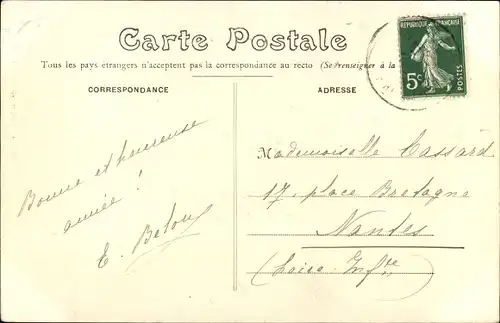 Carte Postale
Tous les pays étrangers n'acceptent pas la correspondance au recto (Se renseigner à la
CORRESPONDANCE
ADRESSE
RÉPUBLIQUE FRANÇAISE
5c
POSTES
Bonne et heureuse
année !
E.
Mademoiselle Cassard
17, place Bretagne
Nantes
(Loire-Infre)